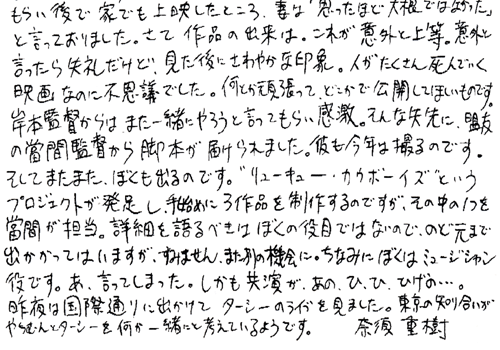 もらい後で家でも上映したところ、妻は「思ったほど大根ではなかった」
と言っておりました。さて作品の出来は。これが意外と上等。意外と
言ったら失礼だけど、見た後にさわやかな印象。人がたくさん死んでいく
映画なのに不思議でした。何とか頑張って、どこかで公開してほしいものです。
岸本監督からは、また一緒にやろうと言ってもらい感激。そんな矢先に、盟友
の當間監督から脚本が届けられました。彼も今年は撮るのです。
そしてまたまた、ぼくも出るのです。"リューキュー・カウボーイズ"という
プロジェクトが発足し、手始めに3作品を制作するのですが、その中の1つを
當間が担当。詳細を語るべきはぼくの役目ではないので、のど元まで
出かかってはいますが、すみません、また別の機会に。ちなみにぼくはミュージシャン
役です。あ、言ってしまった。しかも共演が、あの、ひ、ひ、ひげの…。
昨夜は国際通りに出かけてターシーのライヴを見ました。東京の知り合いが
やちむんとターシーを何か一緒にと考えているようです。 奈須重樹